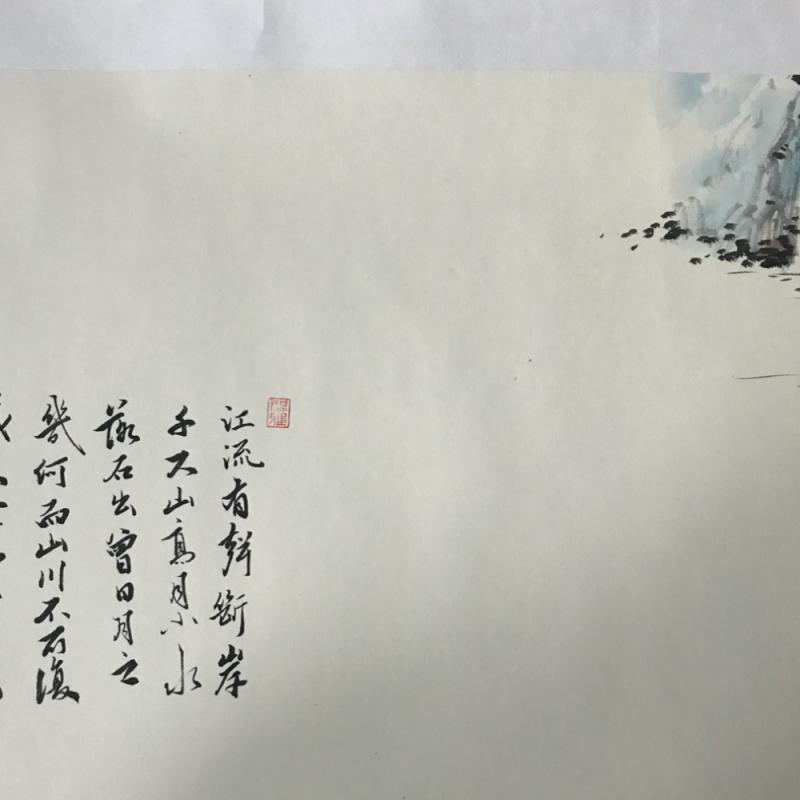 江流有聲斷岸
千尺山高月小水
落石出曾日月之
幾何而山川不可復